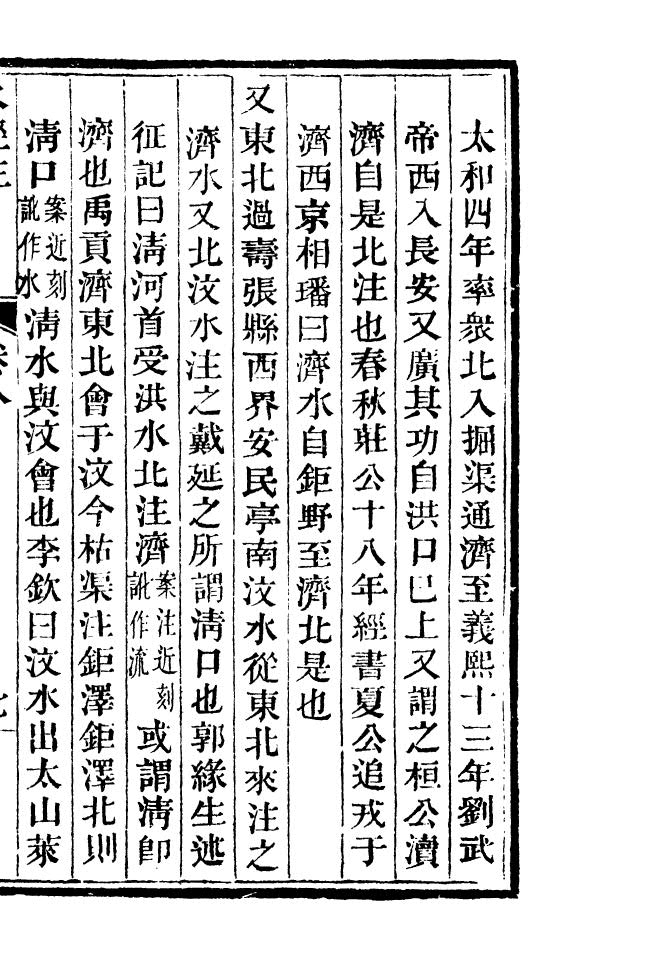 太和四年率衆北入掘渠通濟至義熙十三年劉武
帝西入長安又廣其功自洪口巳上又謂之桓公瀆
濟自是北注也春秋莊公十八年經書夏公追戎于
濟西京相璠曰濟水自鉅野至濟北是也
又東北過壽張縣西界安民亭南汶水從東北來注之
濟水又北汶水注之戴延之所謂淸口也郭緣生述
征記曰淸河首受洪水北注濟案注近刻訛作流或謂淸卽
濟也禹貢濟東北會于汶今枯渠注鉅澤鉅澤北則
淸口案近刻訛作水淸水與汶會也李欽曰汶水出太山萊
水經注 卷八